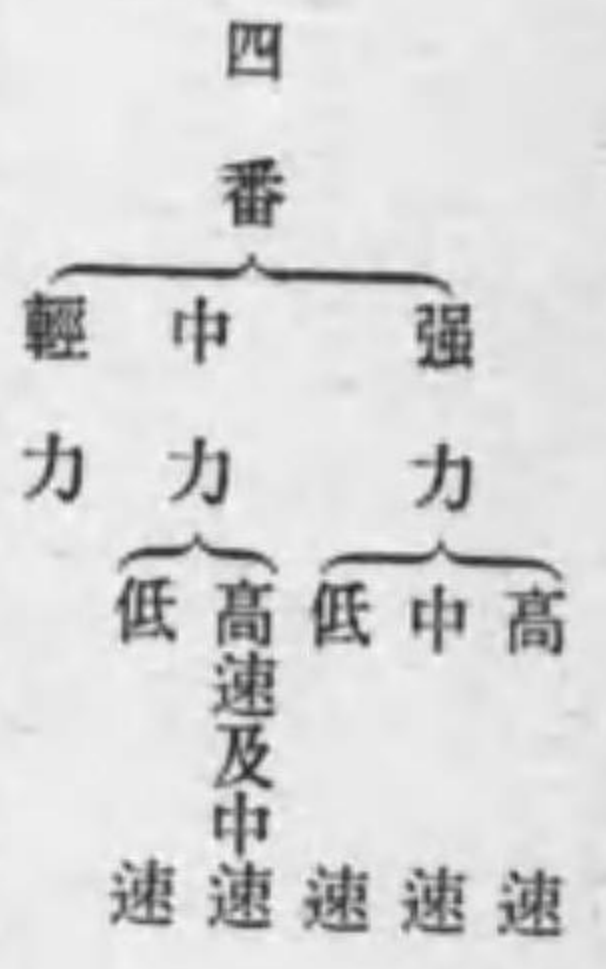 四番
强力
高速
中速
低速
中力
高速及中速
低速
輕力